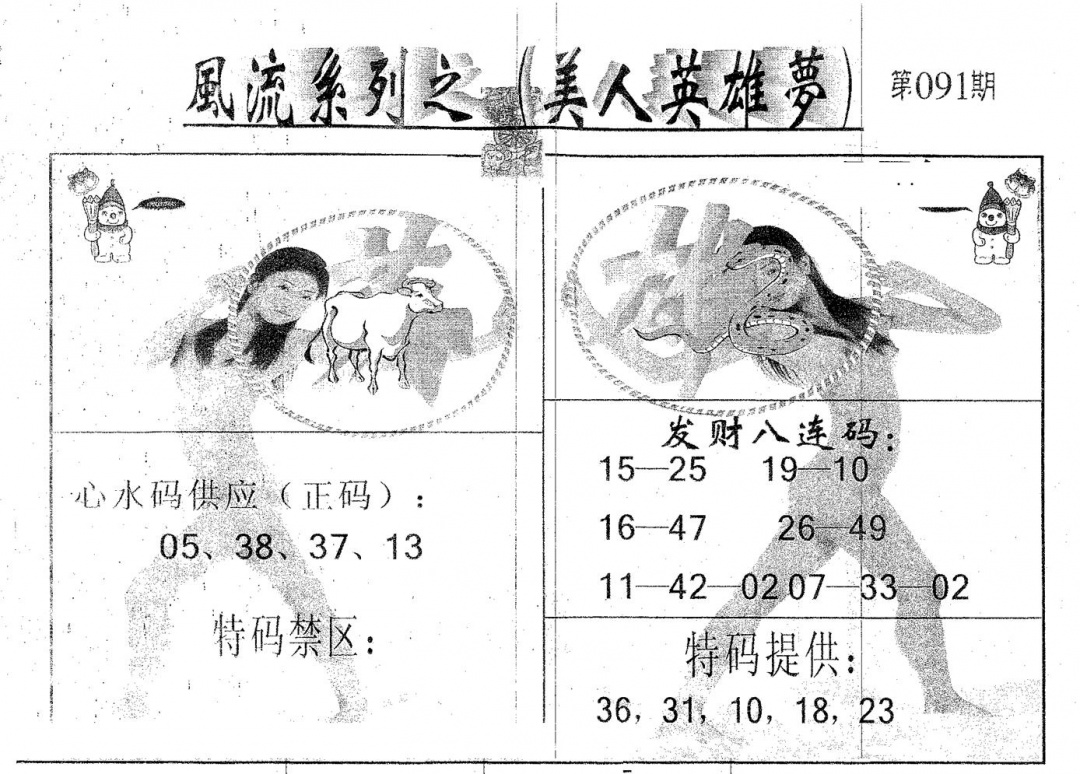 風流系列之（美人英雄夢）
第091期
心水码供应（正码）：
05、38、37、13
特码禁区：
发财八连码：
15—25 19—10
16—47 26—49
11—42—02 07—33—02
特码提供：
36，31，10，18，23